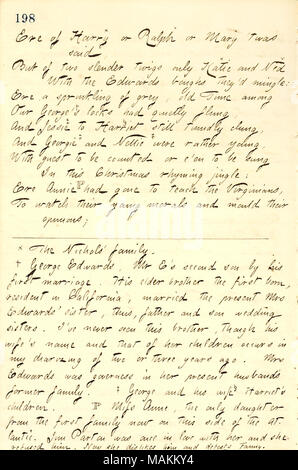 198
Ere of Harry or Ralph or Mary twas
said
But of two slender twigs only Katie and Ned
With the Edwards boughs they'd mingle:
Ere a sprinkling of grey, Old Time among
Our George's locks had quietly flung,
And Jessie to Harriet still timidly clung,
And George and Nellie were rather young,
With quest to be counted or e'en to be sung
In this Christmas rhyming jingle:
Ere Annie had gone to teach the Virginians,
To watch their young morals and mould their
opinions;
* The Nichols' family.
† George Edwards. Mr E's second son by his
first marriage. His elder brother the first born,
resident in California, married the present Mrs
Edwards' sister, thus, father and son wedding
sisters. I've never seen this brother, though his
wife's name and that of her children occurs in
my diarizing of two or three years ago. Mrs
Edwards was governess in her present husbands
former family. George and his wife Harriet's
children. Miss Anne, the only daughter
from the first family now on this side of the At-
lantic. Jim Parton was once in love with her and she
refused him. Now she dislikes him and detests Fanny.
alamy
MAKKY4